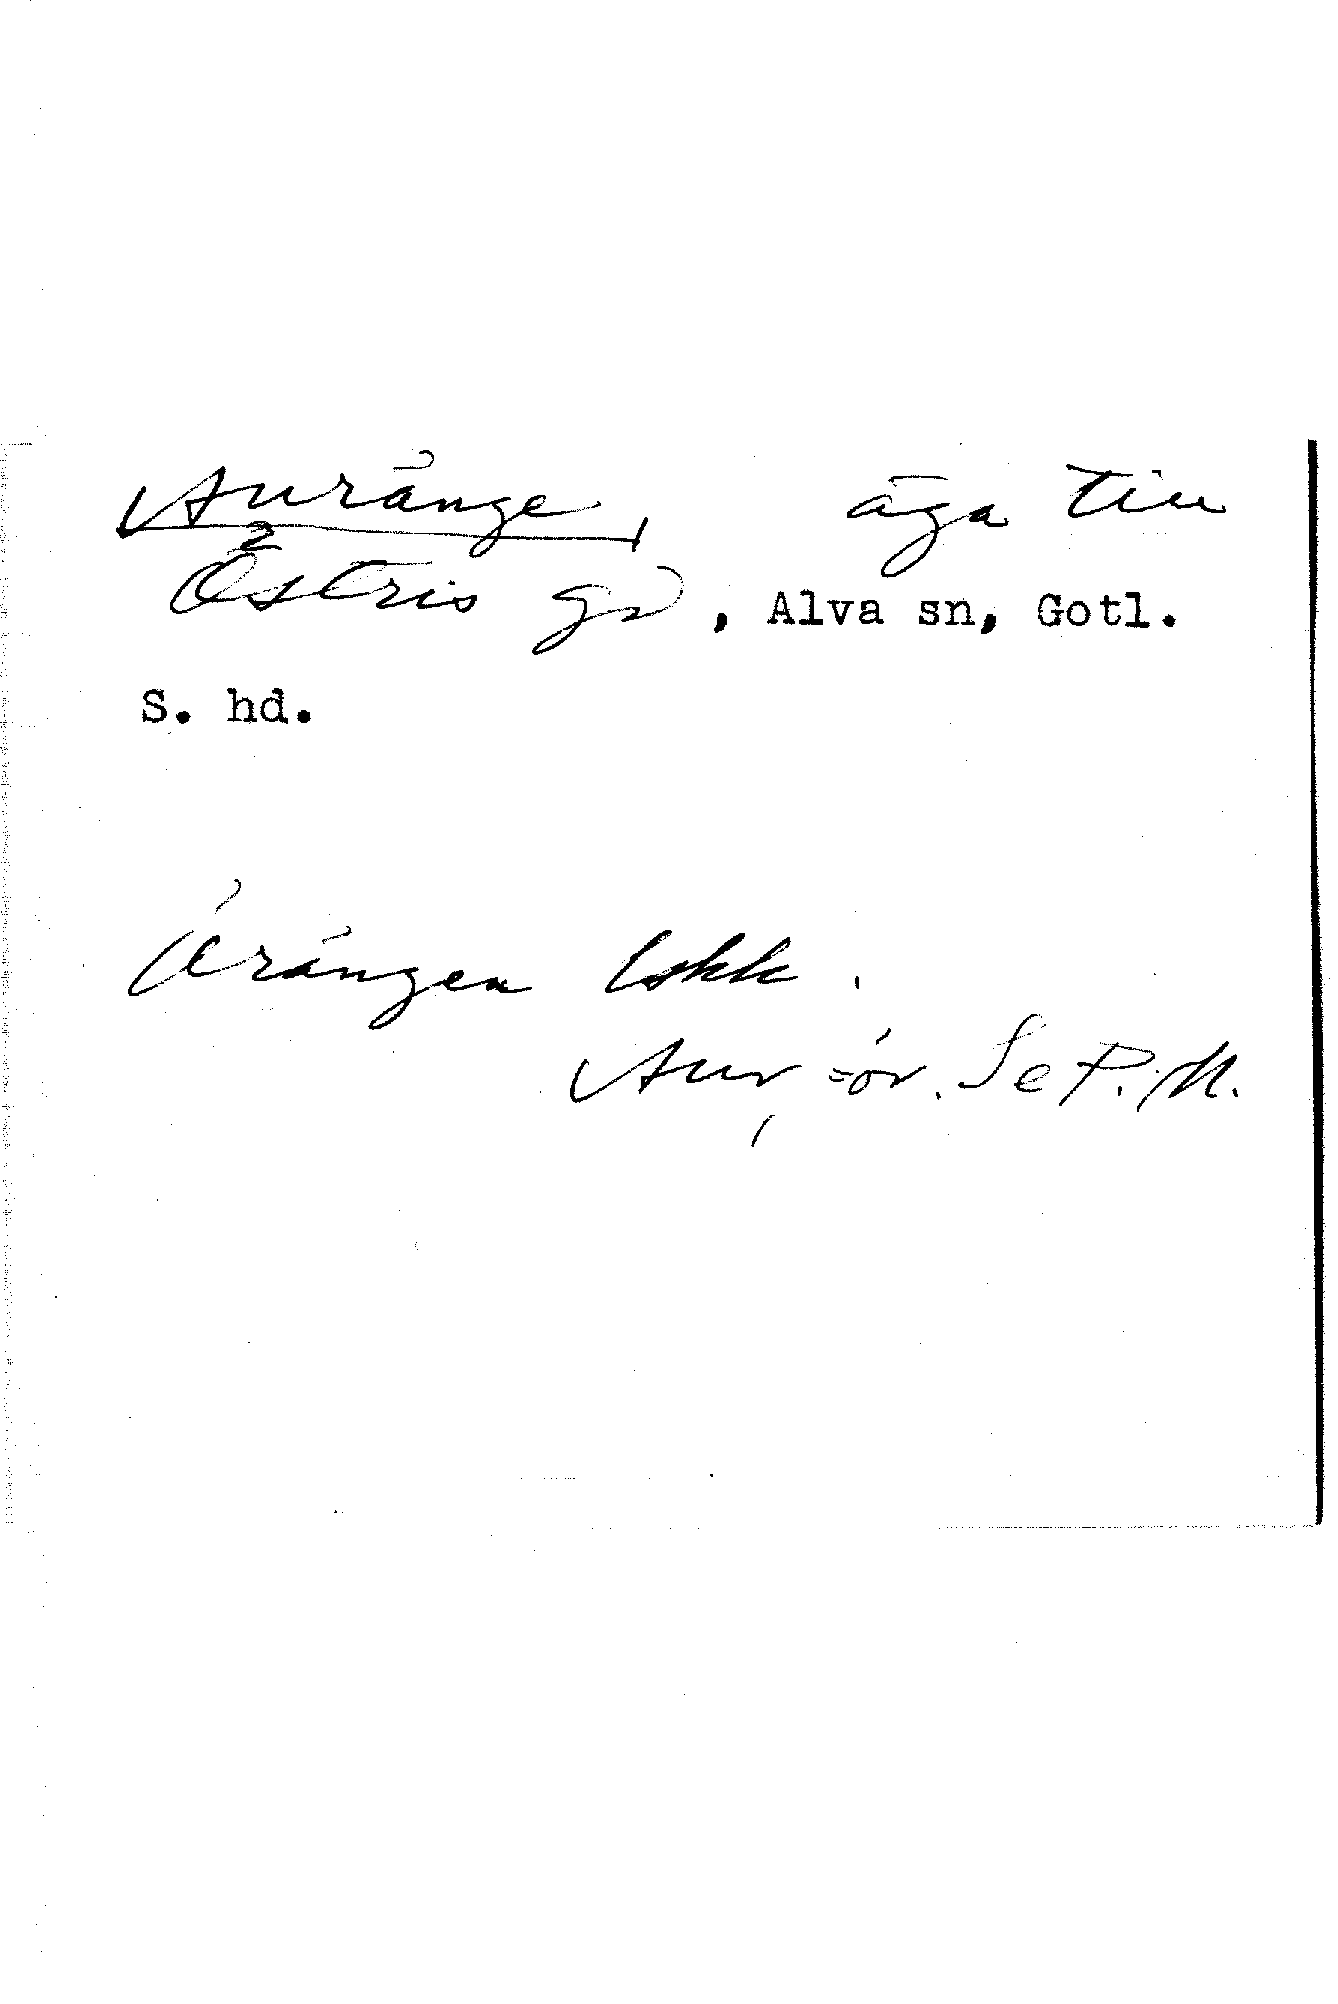 Auränge, äga till
Östris gd, Alva sn, Gotl.
S. hd.
Órängen lskk.
Aur = ór. Se P. M.